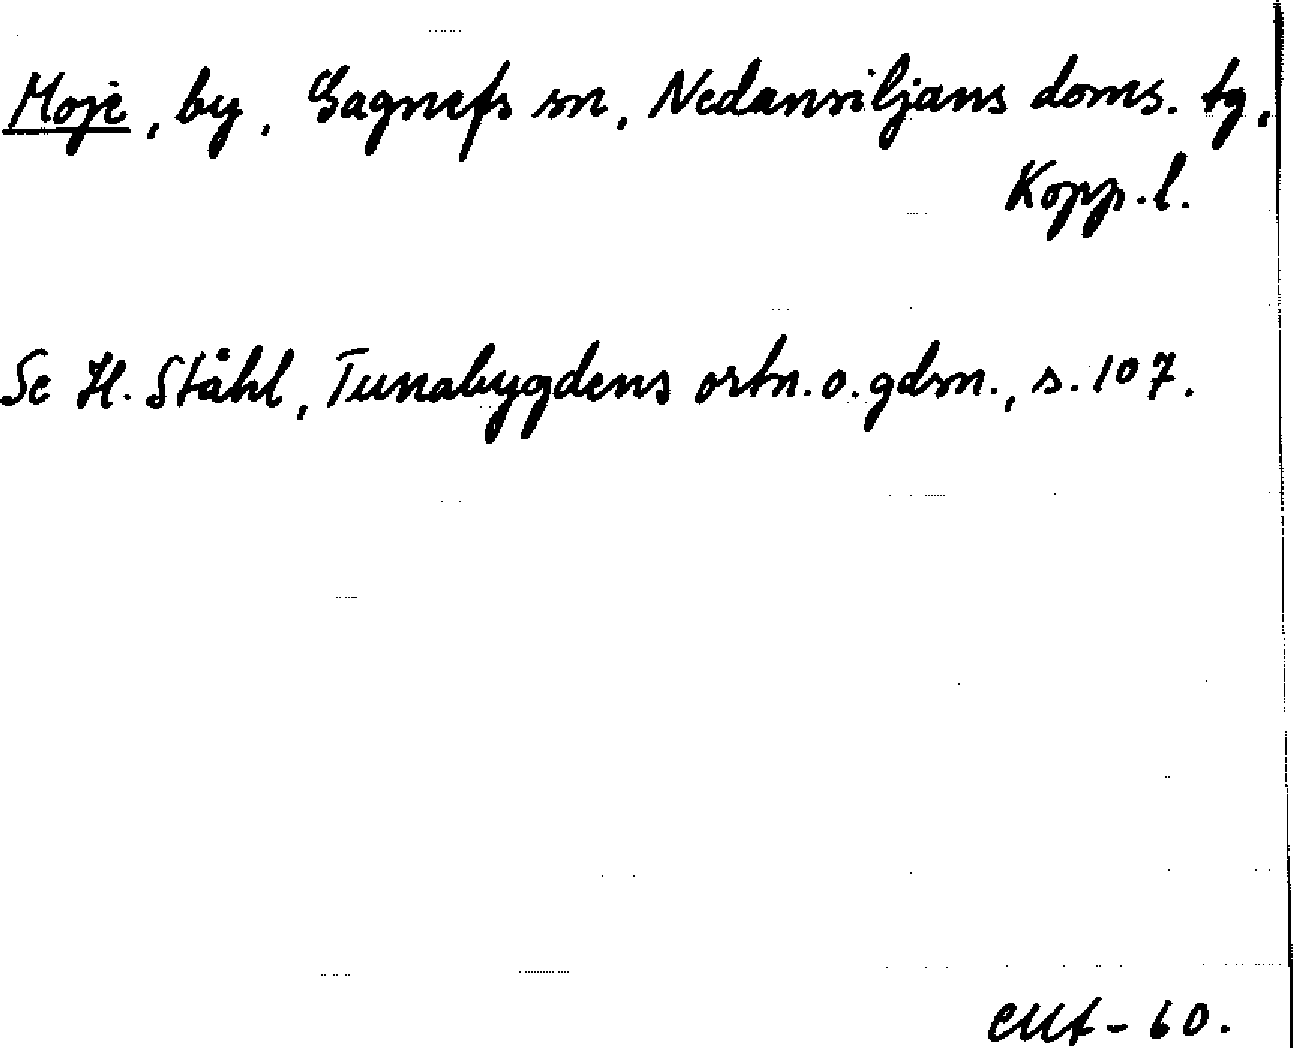 Moje, by, Gagnefs sn, Nedansiljans doms. tg,
Kopp. l.
Se H. Ståhl, Tunabygdens ortn. o. gdsn., s. 107.
- 60.